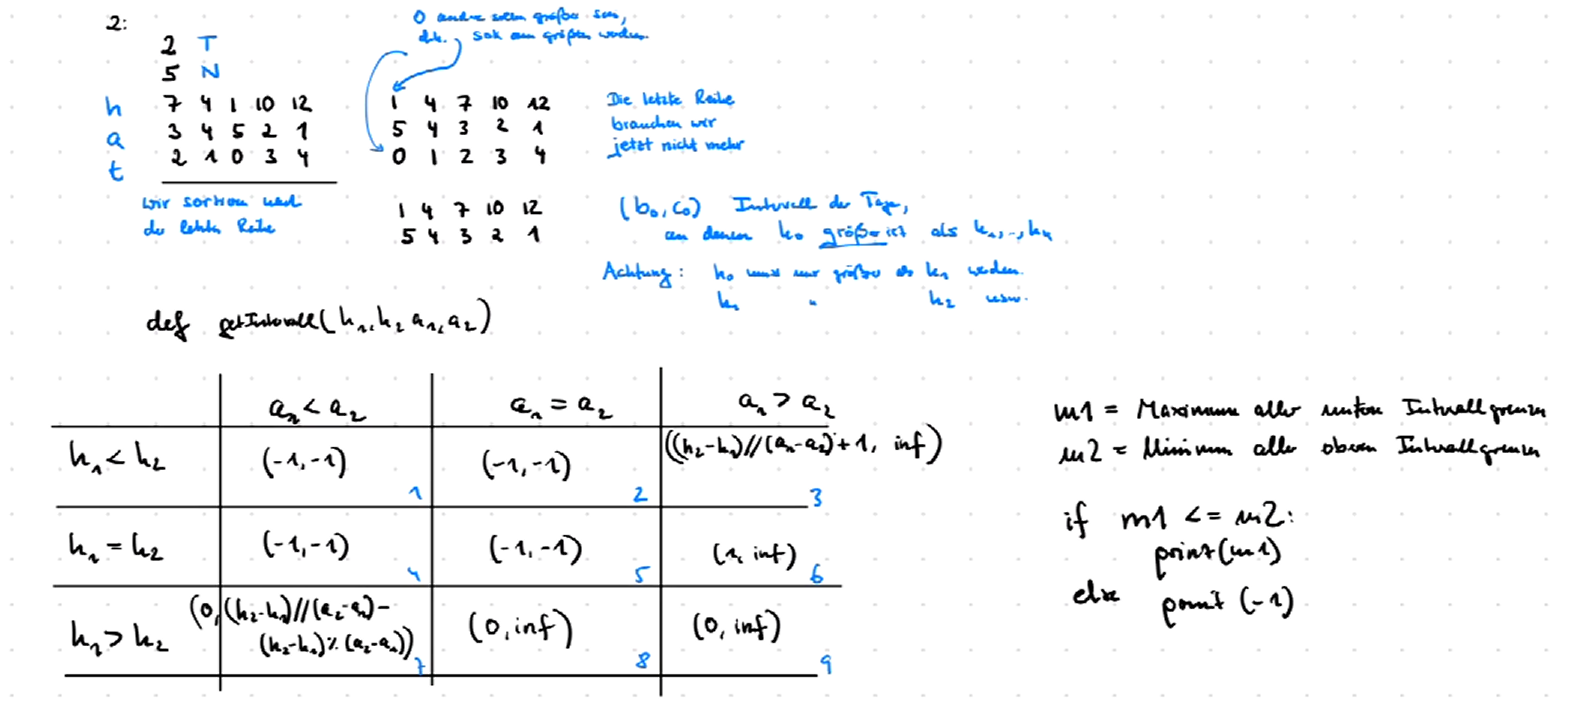 2:
2 T
5 N
h 7 4 1 10 12
a 3 4 5 2 1
t 2 1 0 3 4
wir sortieren nach
der letzten Reihe
0 andere sollen größer sein,
d.h. soll am größten werden.
1 4 7 10 12
5 4 3 2 1
0 1 2 3 4
Die letzte Reihe
brauchen wir
jetzt nicht mehr
1 4 7 10 12
5 4 3 2 1
(b₀, c₀) Intervall der Tage,
an denen h₀ größer ist als h₁,..,hₙ
Achtung: h₀ muss nur größer als h₁ werden.
h₁ " h₂ usw.
def getIntervall(h₁, h₂ a₁, a₂)
a₁ < a₂ a₁ = a₂ a₁ > a₂
h₁ < h₂ (-1,-1) 1 (-1,-1) 2 ((h₂-h₁)//(a₁-a₂)+1, inf) 3
h₁ = h₂ (-1,-1) 4 (-1,-1) 5 (1, inf) 6
h₁ > h₂ (0,(h₂-h₁)//(a₂-a₁)-
(h₂-h₁)%(a₂-a₁)) 7 (0,inf) 8 (0,inf) 9
m1 = Maximum aller unteren Intervallgrenzen
m2 = Minimum aller oberen Intervallgrenzen
if m1 <= m2:
print(m1)
else print(-1)